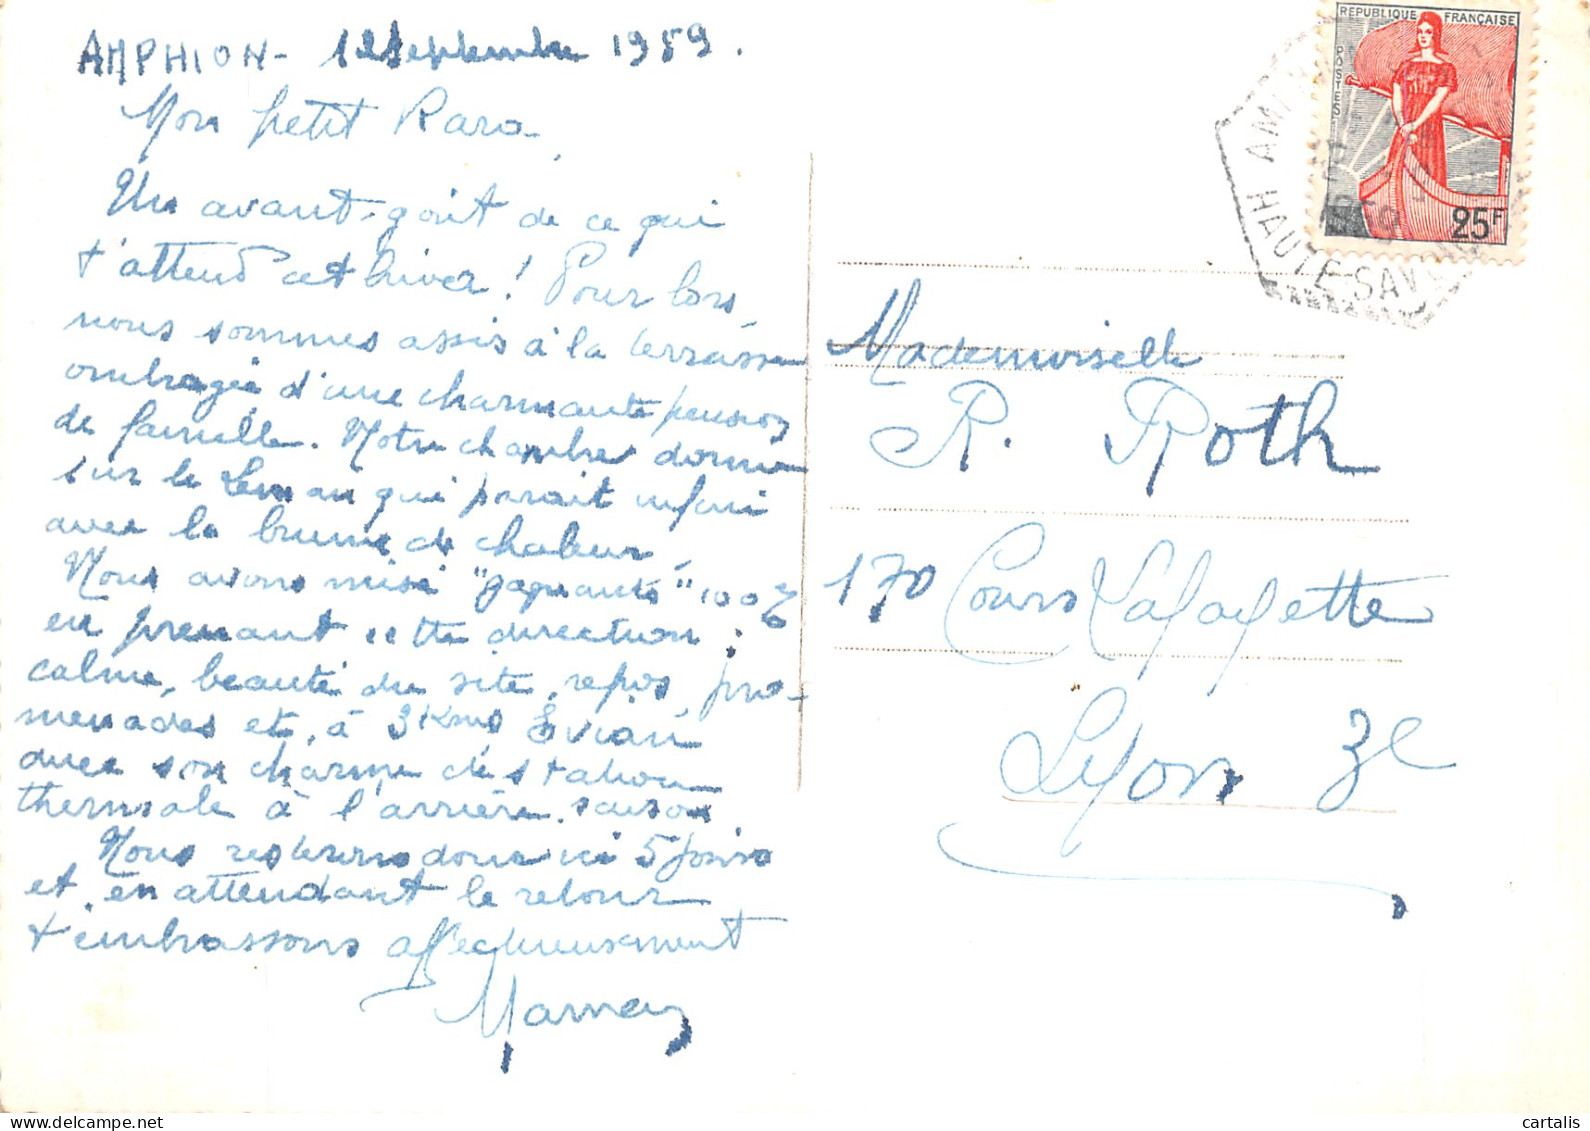 AMPHION - 12 Septembre 1959.
Mon petit Rara
Un avant-goût de ce qui
t'attend cet hiver ! Pour lors,
nous sommes assis à la terrasse
ombragée d'une charmante pension
de famille. Notre chambre donne
sur le Léman qui paraît infini
avec la brume de chaleur.
Nous avons misé "gagnants" 100%
en prenant cette direction :
calme, beauté du site, repos, pro-
menades et, à 3 Kms Evian
avec son charme de station
thermale à l'arrière-saison
Nous resterons donc ici 5 jours
et en attendant le retour
t'embrassons affectueusement
REPUBLIQUE FRANÇAISE
POSTES
25F
HAUTE-SAVOIE
1959
Mademoiselle
R. Roth
170 Cours Lafayette
Lyon 3e
cartalis